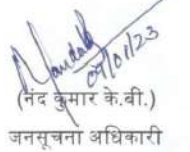 09/01/23
(नंद कुमार के.बी.)
जनसूचना अधिकारी